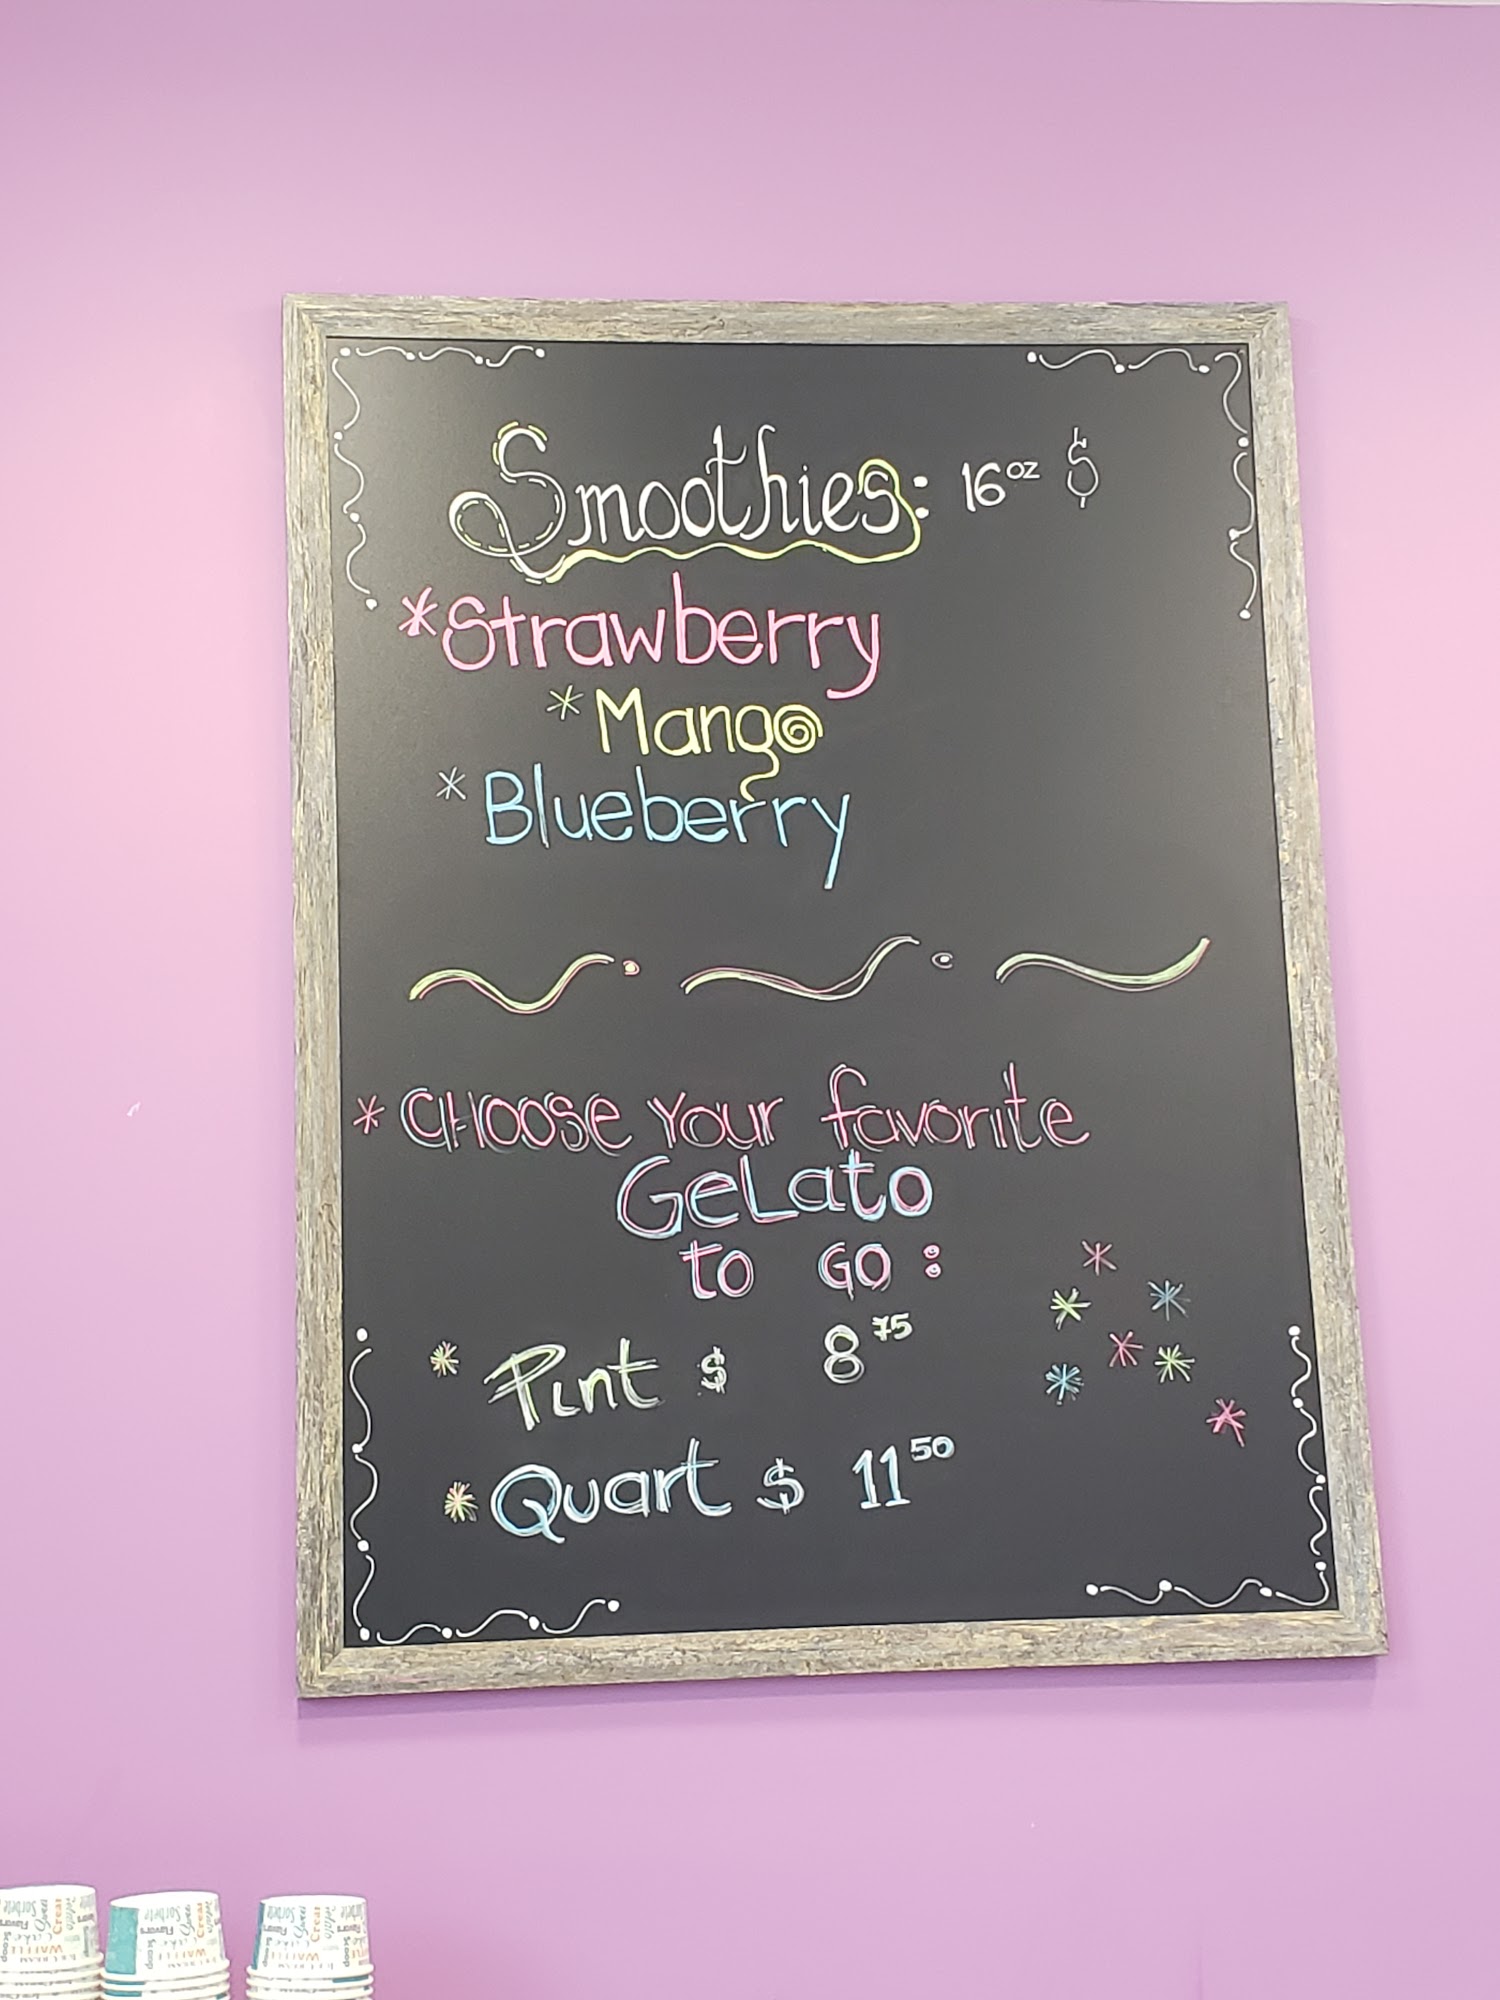 Smoothies: 16oz $
*Strawberry
*Mango
*Blueberry
*CHOOSe Your favorite
GeLato
to GO:
* Pint $ 8 75
* Quart $ 11 50